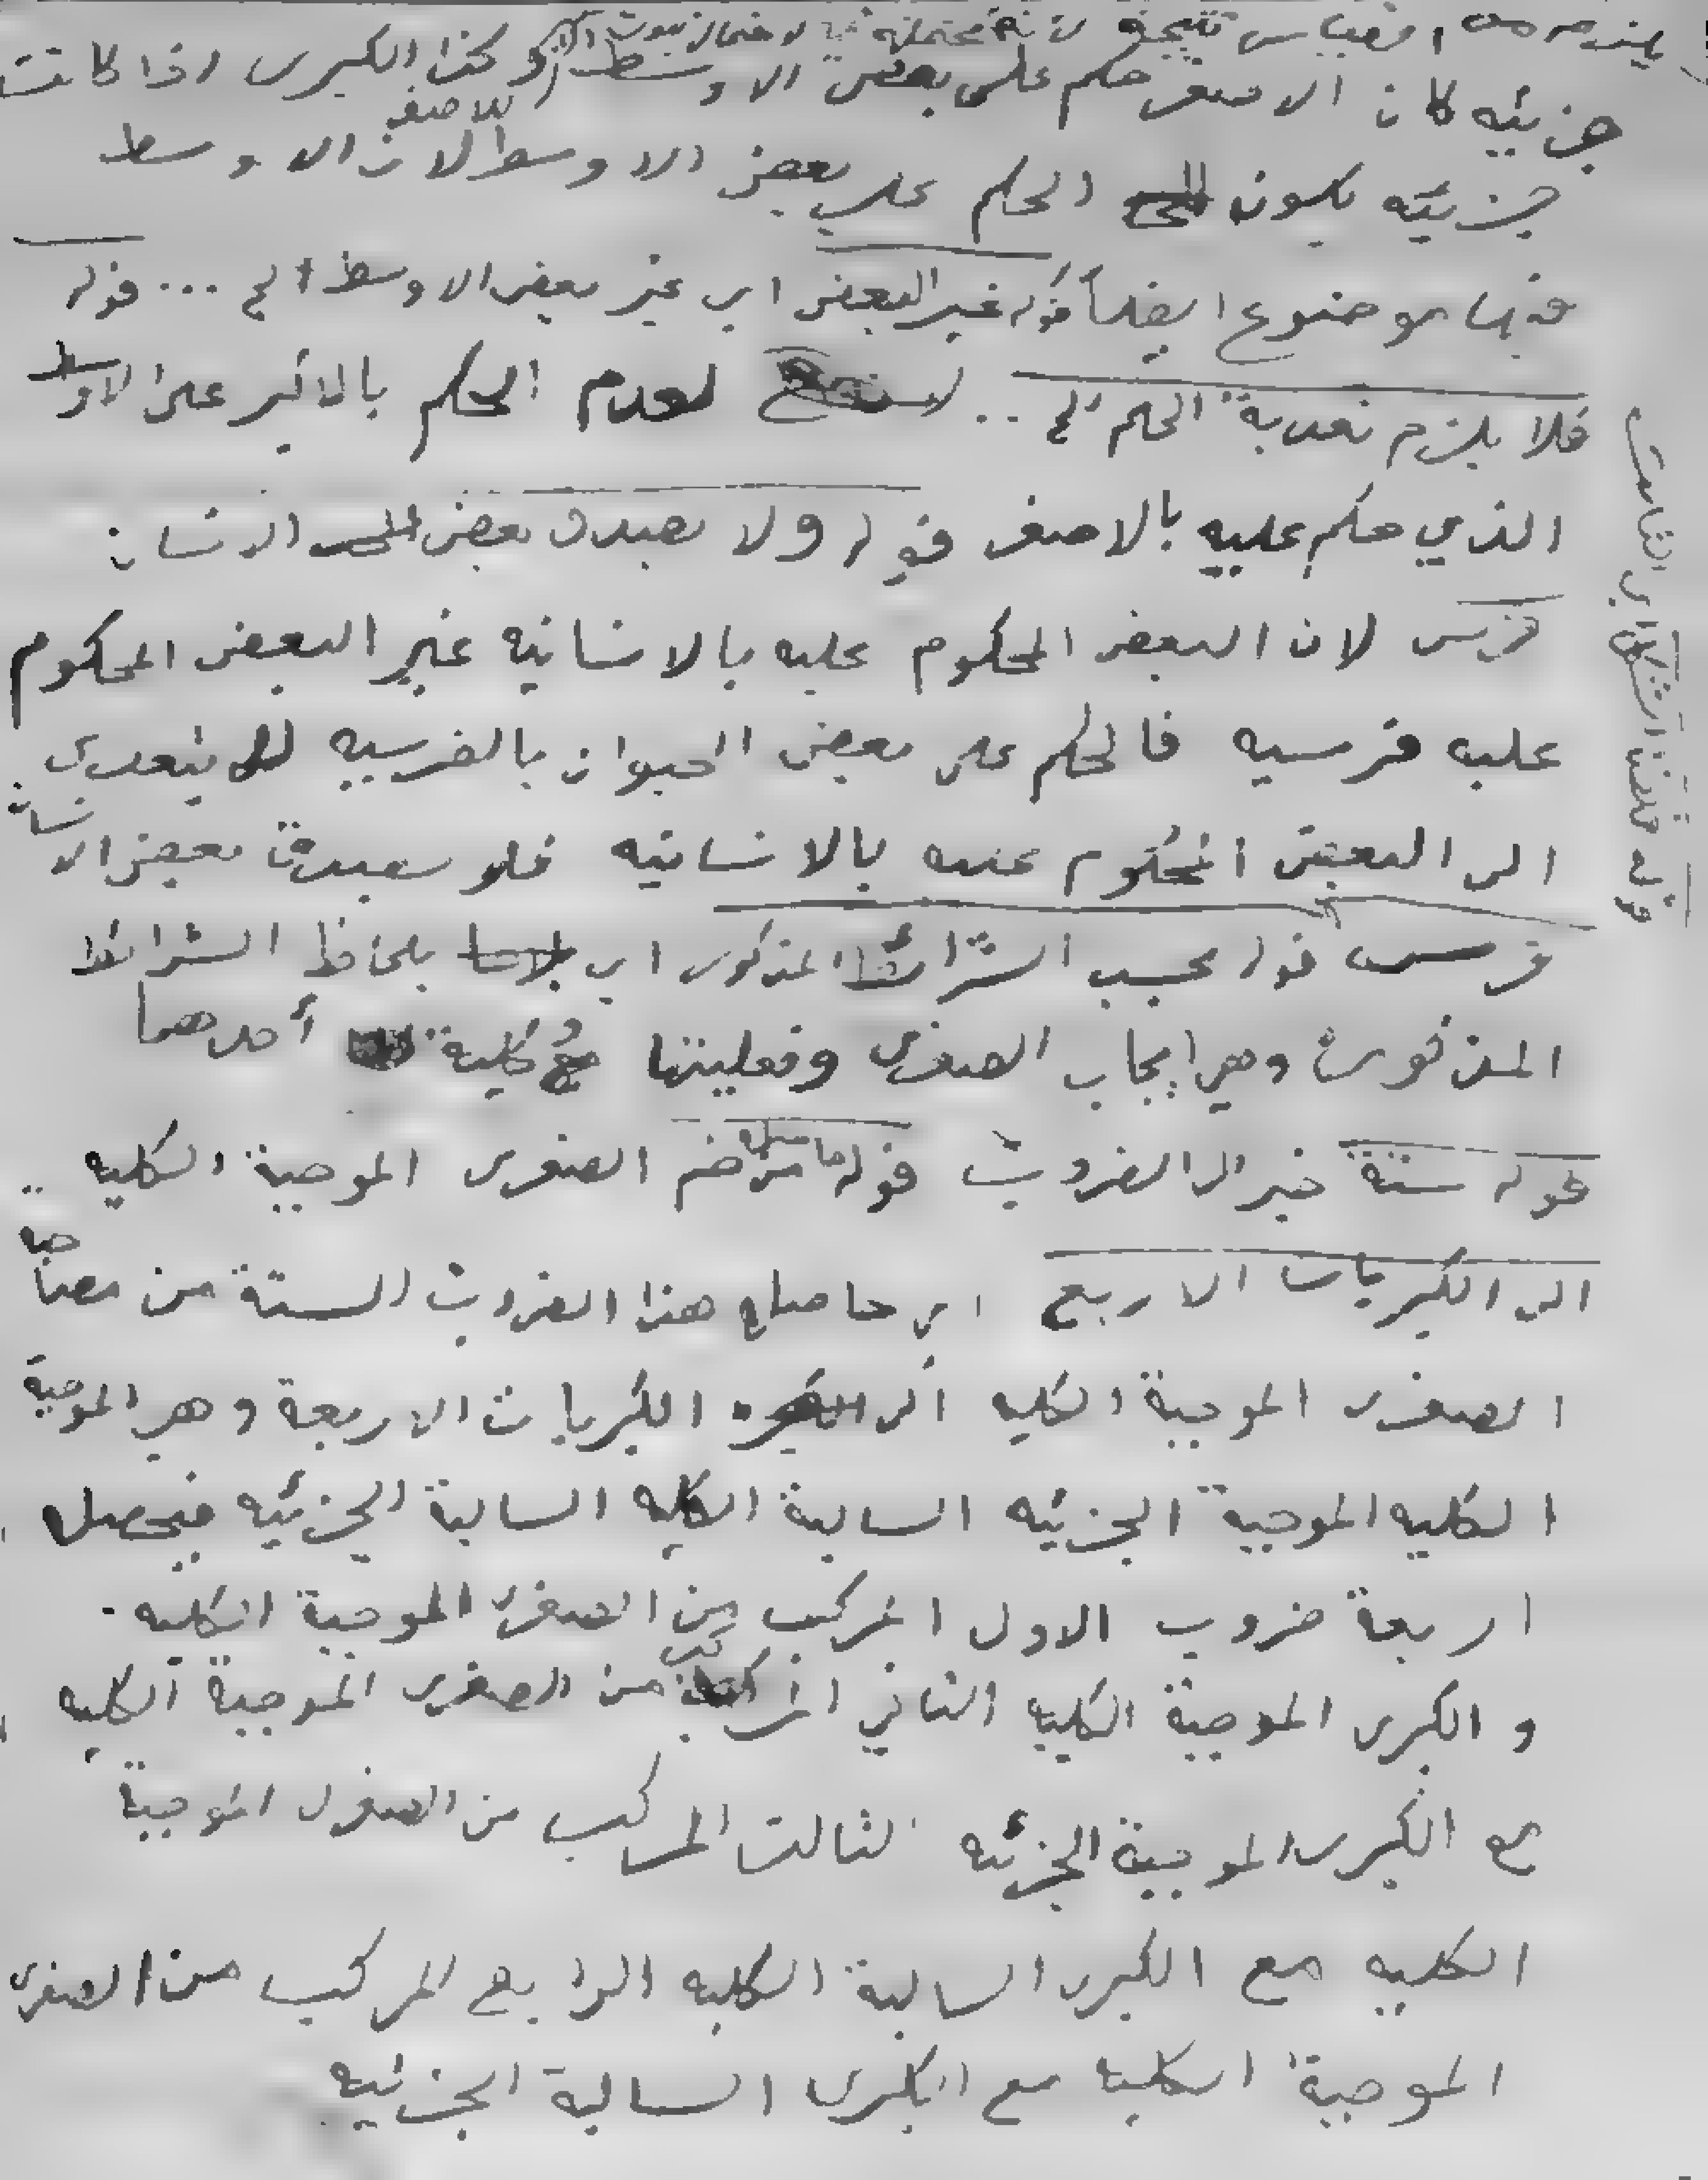 يلزم من القياس نتيجة
جزئيه كان الاصغر حكم على بعض الاوسط وكذا الكبرى اذا كانت
جزئيه يكون الحكم على بعض الاوسط للاصغر لان الاوسط
فيها موضوع ايضاً قوله غير البعض اي غير بعض الاوسط الخ ... قوله
فلا يلزم تعدية الحكم الخ .. لعدم الحكم بالاكبر على الاوسط
الذي حكم عليه بالاصغر قوله ولا يصدق بعض الانسان
فرس لان البعض المحكوم عليه بالانسانيه غير البعض المحكوم
عليه فرسيه فالحكم على بعض الحيوان بالفرسيه لا يتعدى
الى البعض المحكوم عليه بالانسانيه فلا يصدق بعض الانسان
فرس قوله بحسب الشرائط المذكور اي بلحاظ الشرائط
المذكورة وهي ايجاب الصغرى وفعليتها وكلية أحدهما
قوله ستة خبر الضروب قوله حاصلة من ضم الصغرى الموجبة الكليه
الى الكبريات الاربع اي حاصلة هذا الضروب الستة من مصاحبة
الصغرى الموجبة الكليه الى الكبريات الاربعة وهي الموجبة
الكليه الموجبة الجزئيه السالبة الكليه السالبة الجزئيه فيحصل
اربعة ضروب الاول المركب من الصغرى الموجبة الكليه
و الكبرى الموجبة الكليه الثاني المركب من الصغرى الموجبة الكليه
مع الكبرى الموجبة الجزئيه الثالث المركب من الصغرى الموجبة
الكليه مع الكبرى السالبة الكليه الرابع المركب من الصغرى
الموجبة الكليه مع الكبرى السالبة الجزئيه